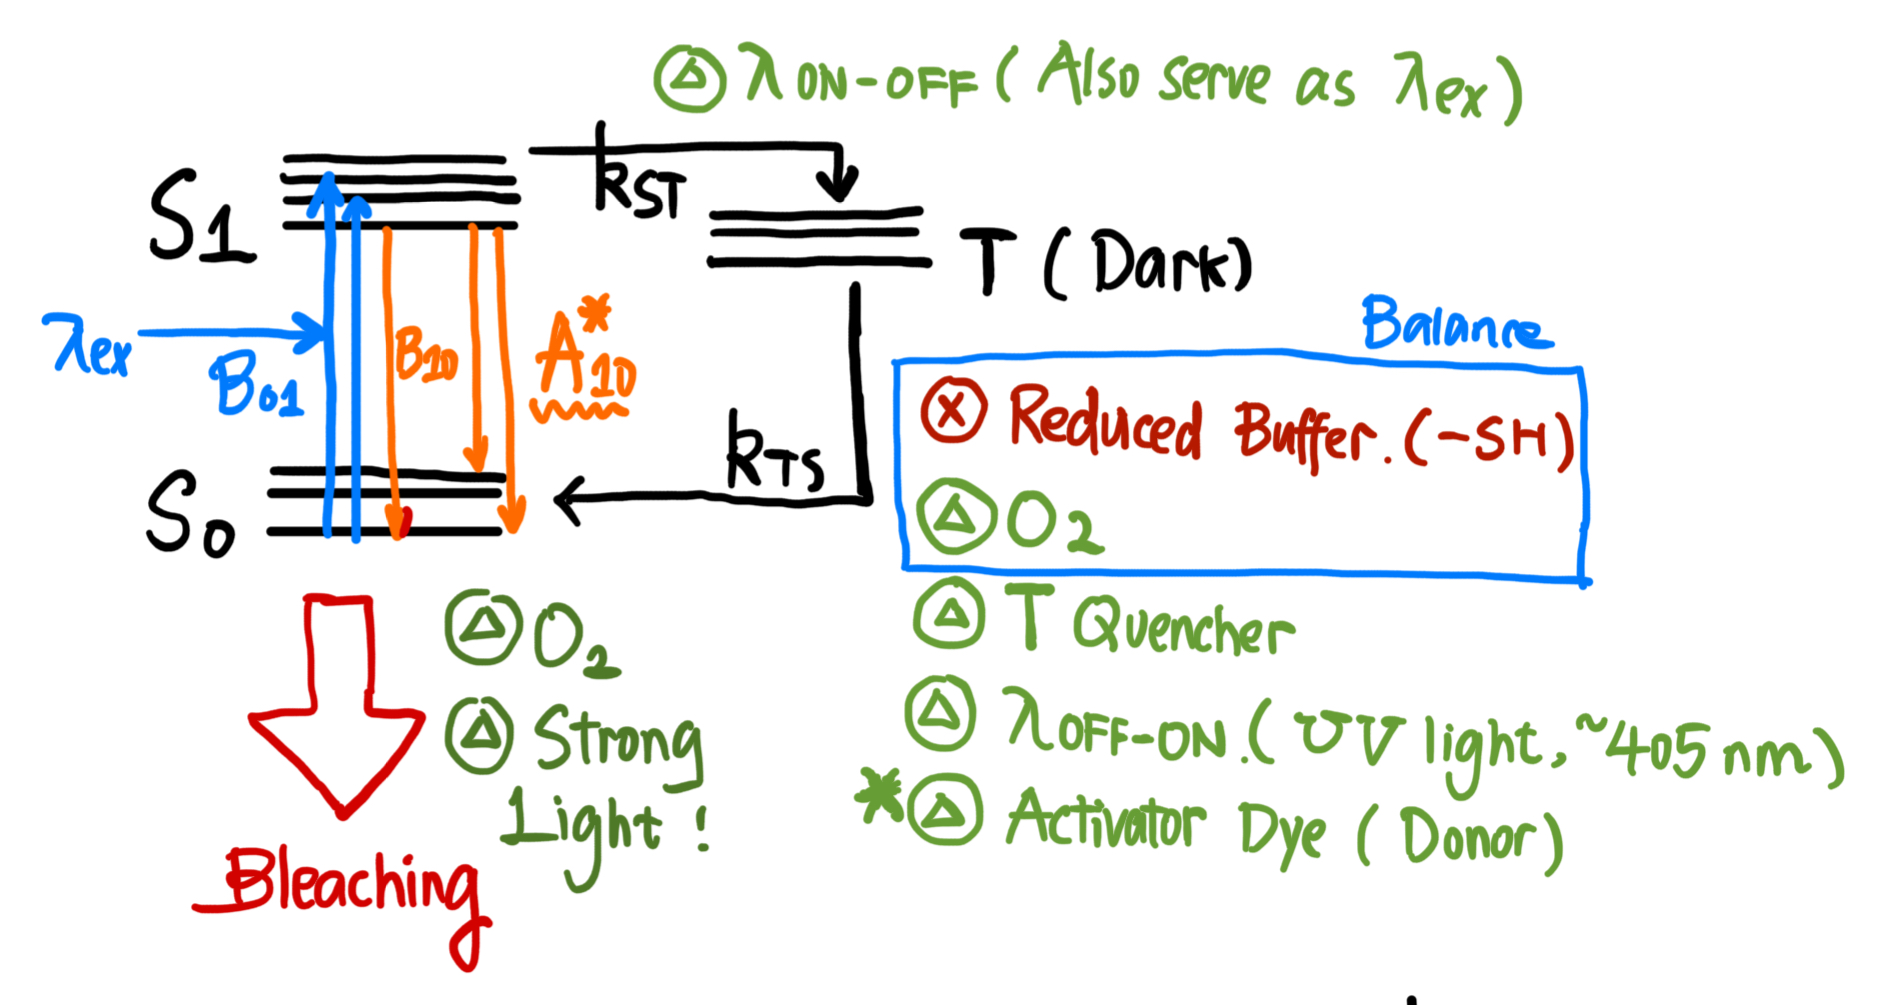 △ λON-OFF ( Also serve as λex )
S1
kST
T ( Dark )
λex
B01
B10
A*10
Balance
ⓧ Reduced Buffer. (-SH)
△ O2
kTS
S0
△ T Quencher
△ λOFF-ON. ( UV light, ~405 nm )
* △ Activator Dye ( Donor )
△ O2
△ Strong
Light !
Bleaching